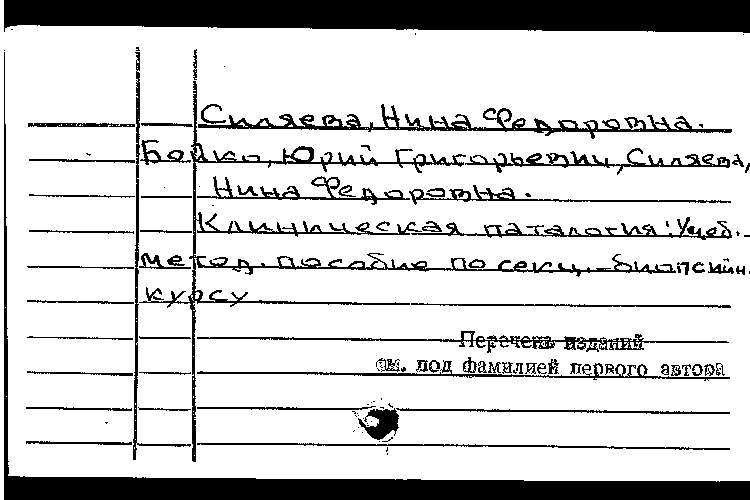 Силяева, Нина Федоровна.
Бойко, Юрий Григорьевич, Силяева,
Нина Федоровна.
Клиническая паталогия: Учеб.-
метод. пособие по секц.-биопсийн.
курсу
Перечень изданий
см. под фамилией первого автора